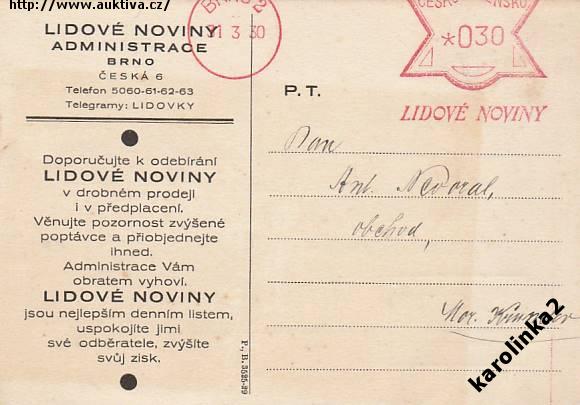 http://www.auktiva.cz/
LIDOVÉ NOVINY
ADMINISTRACE
BRNO
ČESKÁ 6
Telefon 5060-61-62-63
Telegramy: LIDOVKY
Doporučujte k odebírání
LIDOVÉ NOVINY
v drobném prodeji
i v předplacení.
Věnujte pozornost zvýšené
poptávce a přiobjednejte
ihned.
Administrace Vám
obratem vyhoví.
LIDOVÉ NOVINY
jsou nejlepším denním listem,
uspokojíte jimi
své odběratele, zvýšíte
svůj zisk.
P., B. 3525-29
BRNO 2
21 3 30
ČESKOSLOVENSKO
*030
LIDOVÉ NOVINY
P. T.
Pan
Ant. Nedoral,
obchod,
Mor.
karolinka2